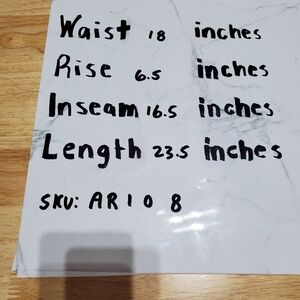 Waist 18 inches
Rise 6.5 inches
Inseam 16.5 inches
Length 23.5 inches
SKU: AR108